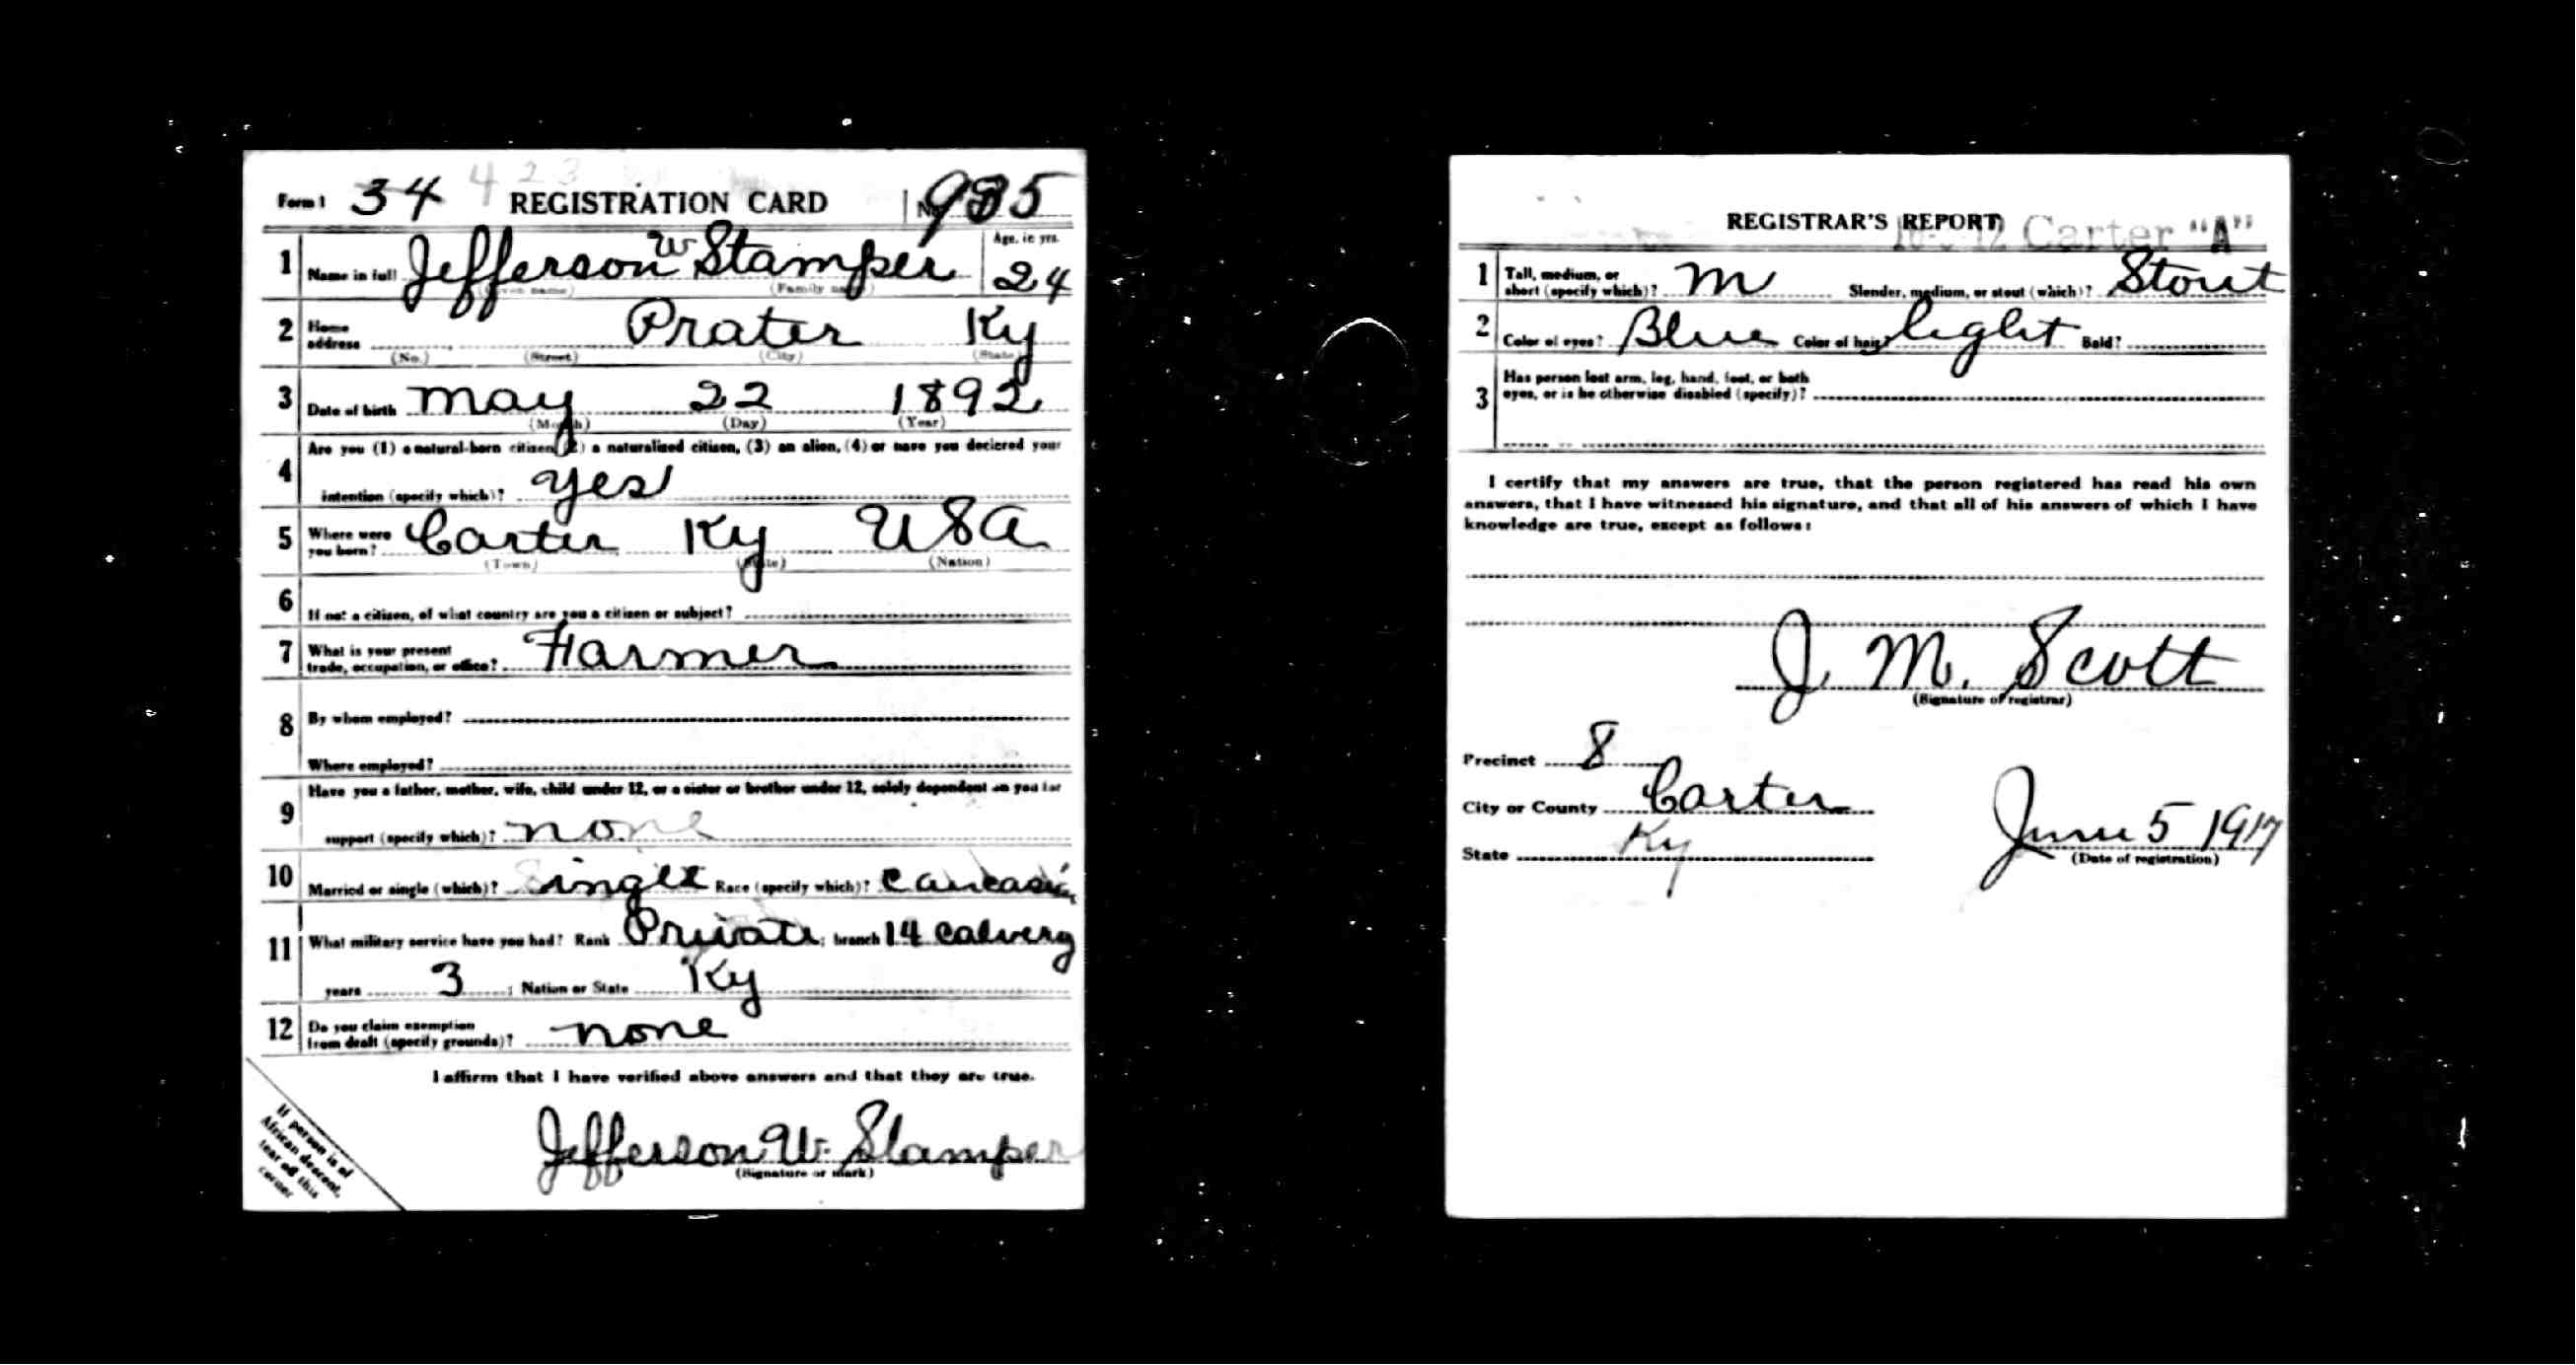 Form 1 34 423 REGISTRATION CARD No. 935
1 Name in full Jefferson W Stamper Age, in yrs. 24
(Given name) (Family name)
2 Home address Prater Ky
(No.) (Street) (City) (State)
3 Date of birth May 22 1892
(Month) (Day) (Year)
4 Are you (1) a natural-born citizen, (2) a naturalized citizen, (3) an alien, (4) or have you declared your
intention (specify which)? yes
5 Where were you born? Carter Ky USA
(Town) (State) (Nation)
6 If not a citizen, of what country are you a citizen or subject?
7 What is your present trade, occupation, or office? Farmer
8 By whom employed?
Where employed?
9 Have you a father, mother, wife, child under 12, or a sister or brother under 12, solely dependent on you for
support (specify which)? none
10 Married or single (which)? Single Race (specify which)? Caucasian
11 What military service have you had? Rank Private ; branch 14 Calvery
years 3 ; Nation or State Ky
12 Do you claim exemption from draft (specify grounds)? none
I affirm that I have verified above answers and that they are true.
Jefferson W. Stamper
(Signature or mark)
If person is of
African descent,
tear off this
corner
REGISTRAR'S REPORT Carter "A"
1 Tall, medium, or short (specify which)? M Slender, medium, or stout (which)? Stout
2 Color of eyes? Blue Color of hair? light Bald?
3 Has person lost arm, leg, hand, foot, or both
eyes, or is he otherwise disabled (specify)?
I certify that my answers are true, that the person registered has read his own
answers, that I have witnessed his signature, and that all of his answers of which I have
knowledge are true, except as follows:
J. M. Scott
(Signature of registrar)
Precinct 8
City or County Carter
State Ky
June 5 1917
(Date of registration)